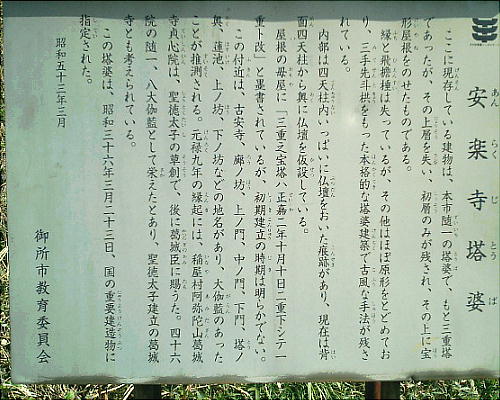 安楽寺塔婆
あんらくじとうば
ここに現存している建物は、本市随一の塔婆で、もと三重塔
であったが、その上層を失い、初層のみが残され、その上に宝
形屋根をのせたものである。
縁と飛檐棰は失っているが、その他はほぼ原形をとどめてお
り、三手先斗栱をもった本格的な塔婆建築で古風な手法が残さ
れている。
内部は四天柱内いっぱいに仏壇をおいた痕跡があり、現在は背
面四天柱から奥に仏壇を仮設している。
屋根の母屋に「三重之宝塔ハ正嘉二年十月十日二重下シテ一
重ト改」と墨書されているが、初期建立の時期は明らかでない。
この付近は、古安寺、廊ノ坊、上ノ門、中ノ門、下門、塔ノ
奥、蓮池、上ノ坊、下ノ坊などの地名があり、大伽藍のあった
ことが推測される。元禄九年の縁起には、稲屋村阿弥陀山葛城
寺貞心院は、聖徳太子の草創で、後に葛城臣に賜うた。四十六
院の随一、八大伽藍として栄えたとあり、聖徳太子建立の葛城
寺とも考えられている。
この塔婆は、昭和三十六年三月二十三日、国の重要建造物に
指定された。
昭和五十三年三月
御所市教育委員会